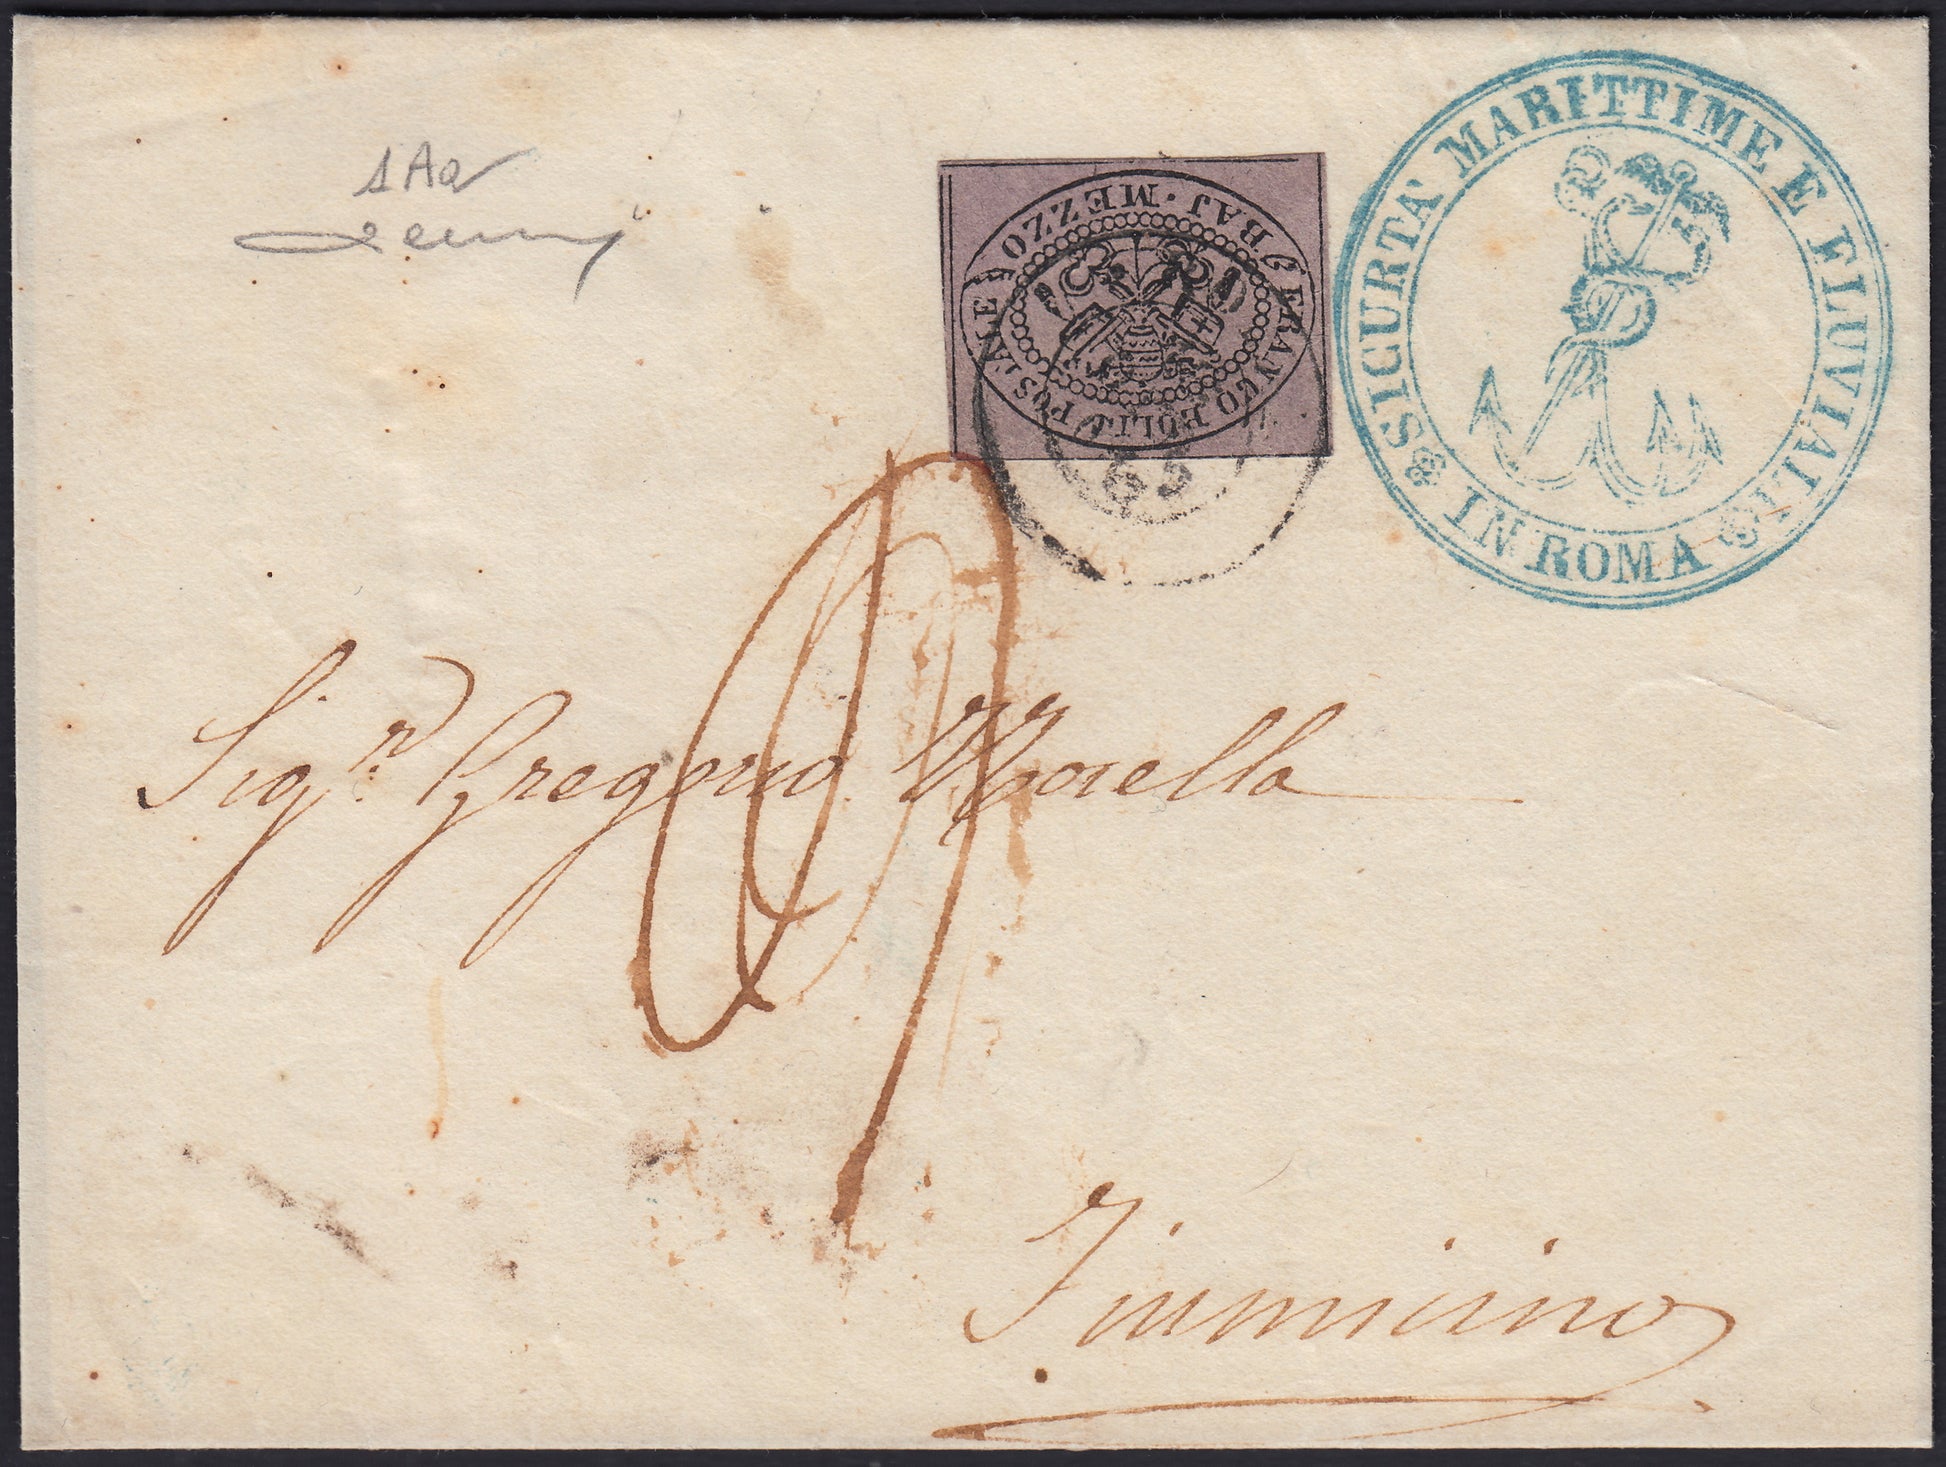 1Aa
SICURTA' MARITTIME E FLUVIALI
IN ROMA
FRANCO BOLLO POSTALE
BAJ. MEZZO
65
Sig.r Gregorio
Fiumicino